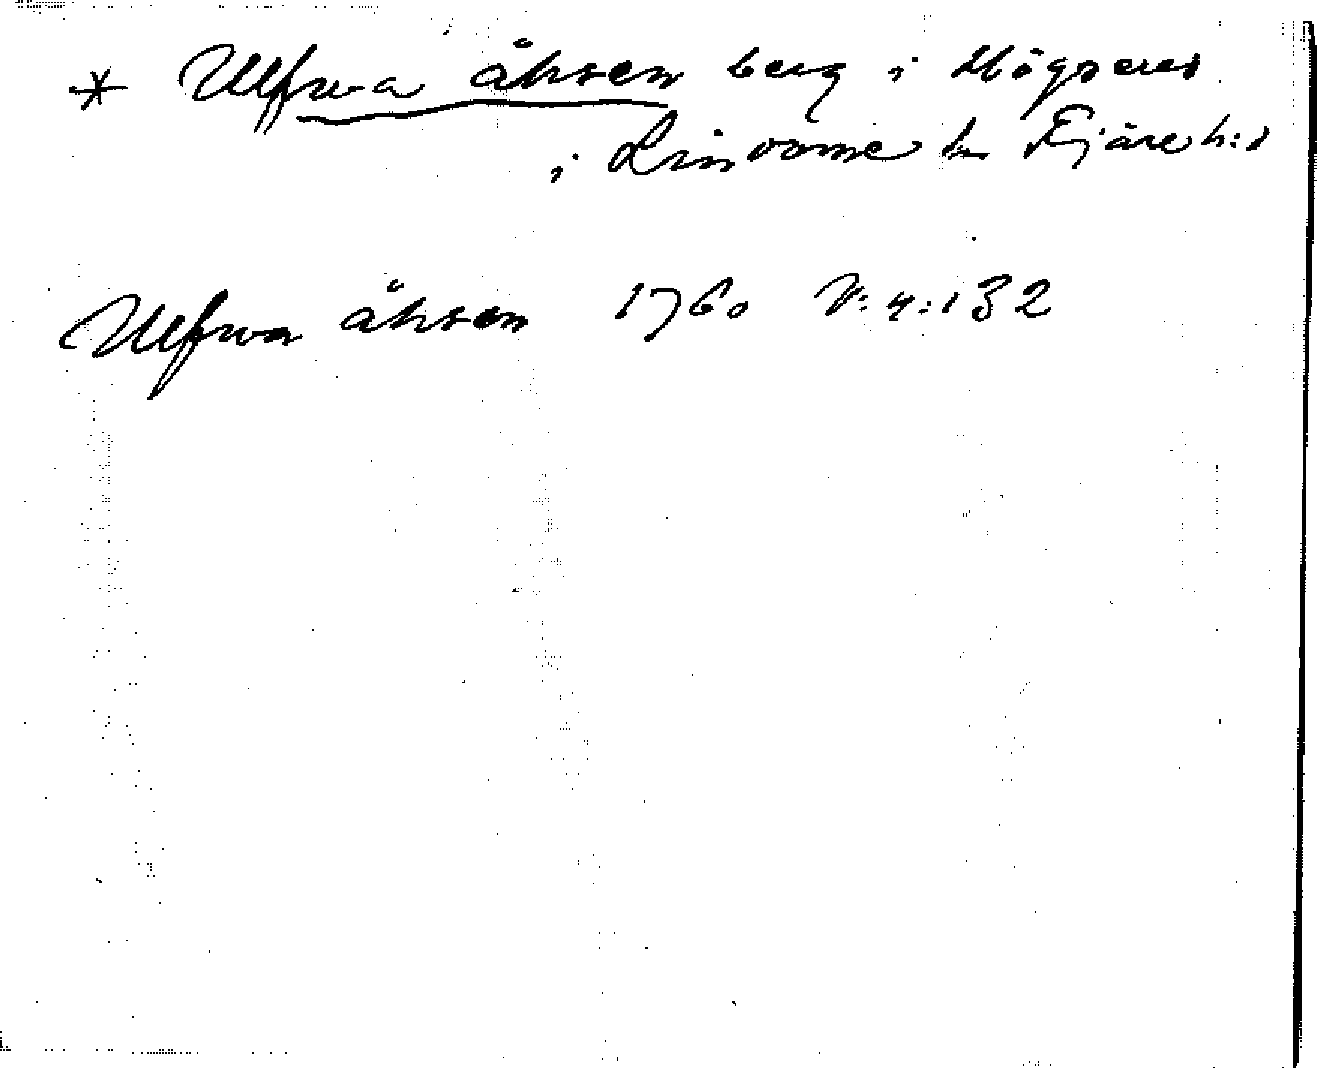 * Ulfwa åhsen berg i Högseres
i Lindome sn Fjäre h:d
Ulfwa åhsen 1760 V:4:132